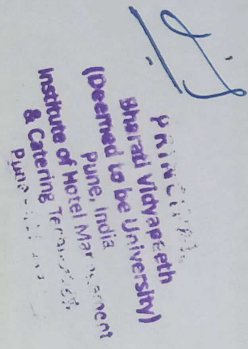 PRINCIPAL
Bharati Vidyapeeth
(Deemed to be University)
Pune, India
Institute of Hotel Management
& Catering Technology
Pune